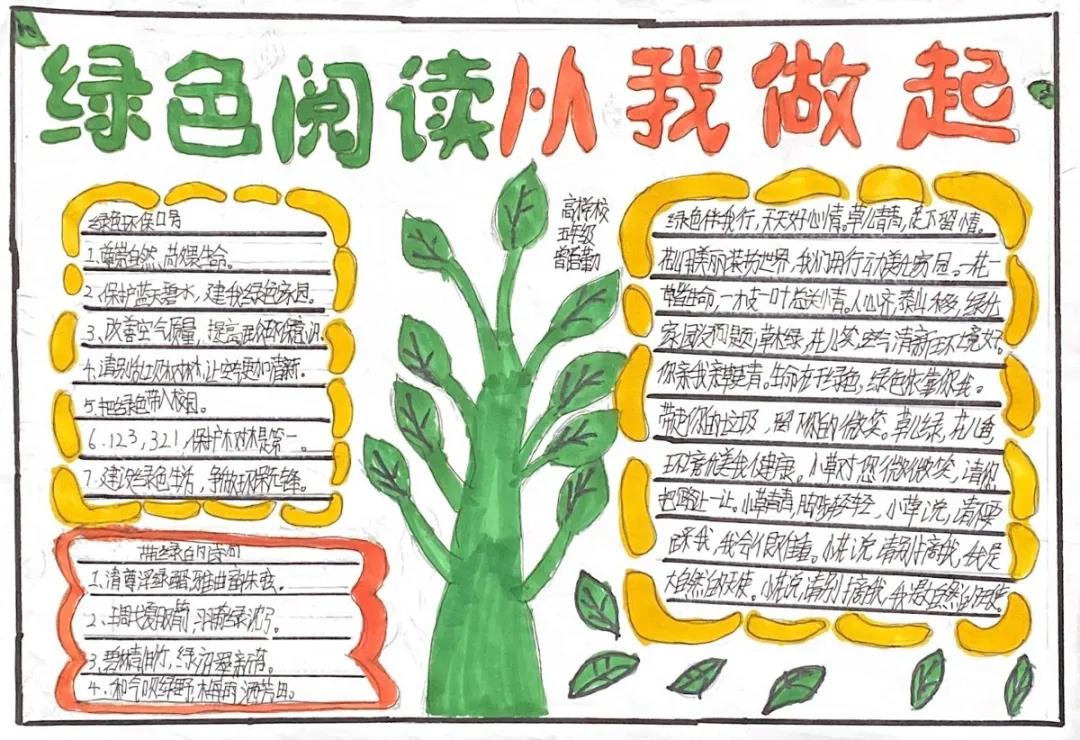 绿色阅读从我做起
绿色环保口号
1.崇尚自然、热爱生命。
2.保护蓝天碧水,建我绿色家园。
3.改善空气质量,提高环保意识。
4.请别乱砍树木,让空气更加清新。
5.把绿色带入校园。
6.123,321,保护树木是第一。
7.建设绿色生活,争做环保先锋。
五年级
绿色伴我行,天天好心情。草儿青青,足下留情。
花儿用美丽装扮世界,我们用行动美化家园。一花一
草皆生命,一木一叶总关情。人心齐,泰山移,绿化
家园没问题,草木绿,花儿笑,空气清新环境好。
你亲我亲攀青。生命在于绿色,绿色依靠你我。
带走你的垃圾,留下你的微笑。草儿绿,花儿香,
环境优美我健康。小草对您微微笑,请您
把路让一让。小草青青,脚步轻轻,小草说,请爱
小花说,请别摘我,我是
大自然的天使。小花说,请别摘我,我是大自然的天使。
带绿的诗句
1.清尊浮绿醑,雅曲韵朱弦。
4.和气吹绿野,梅雨洒芳田。